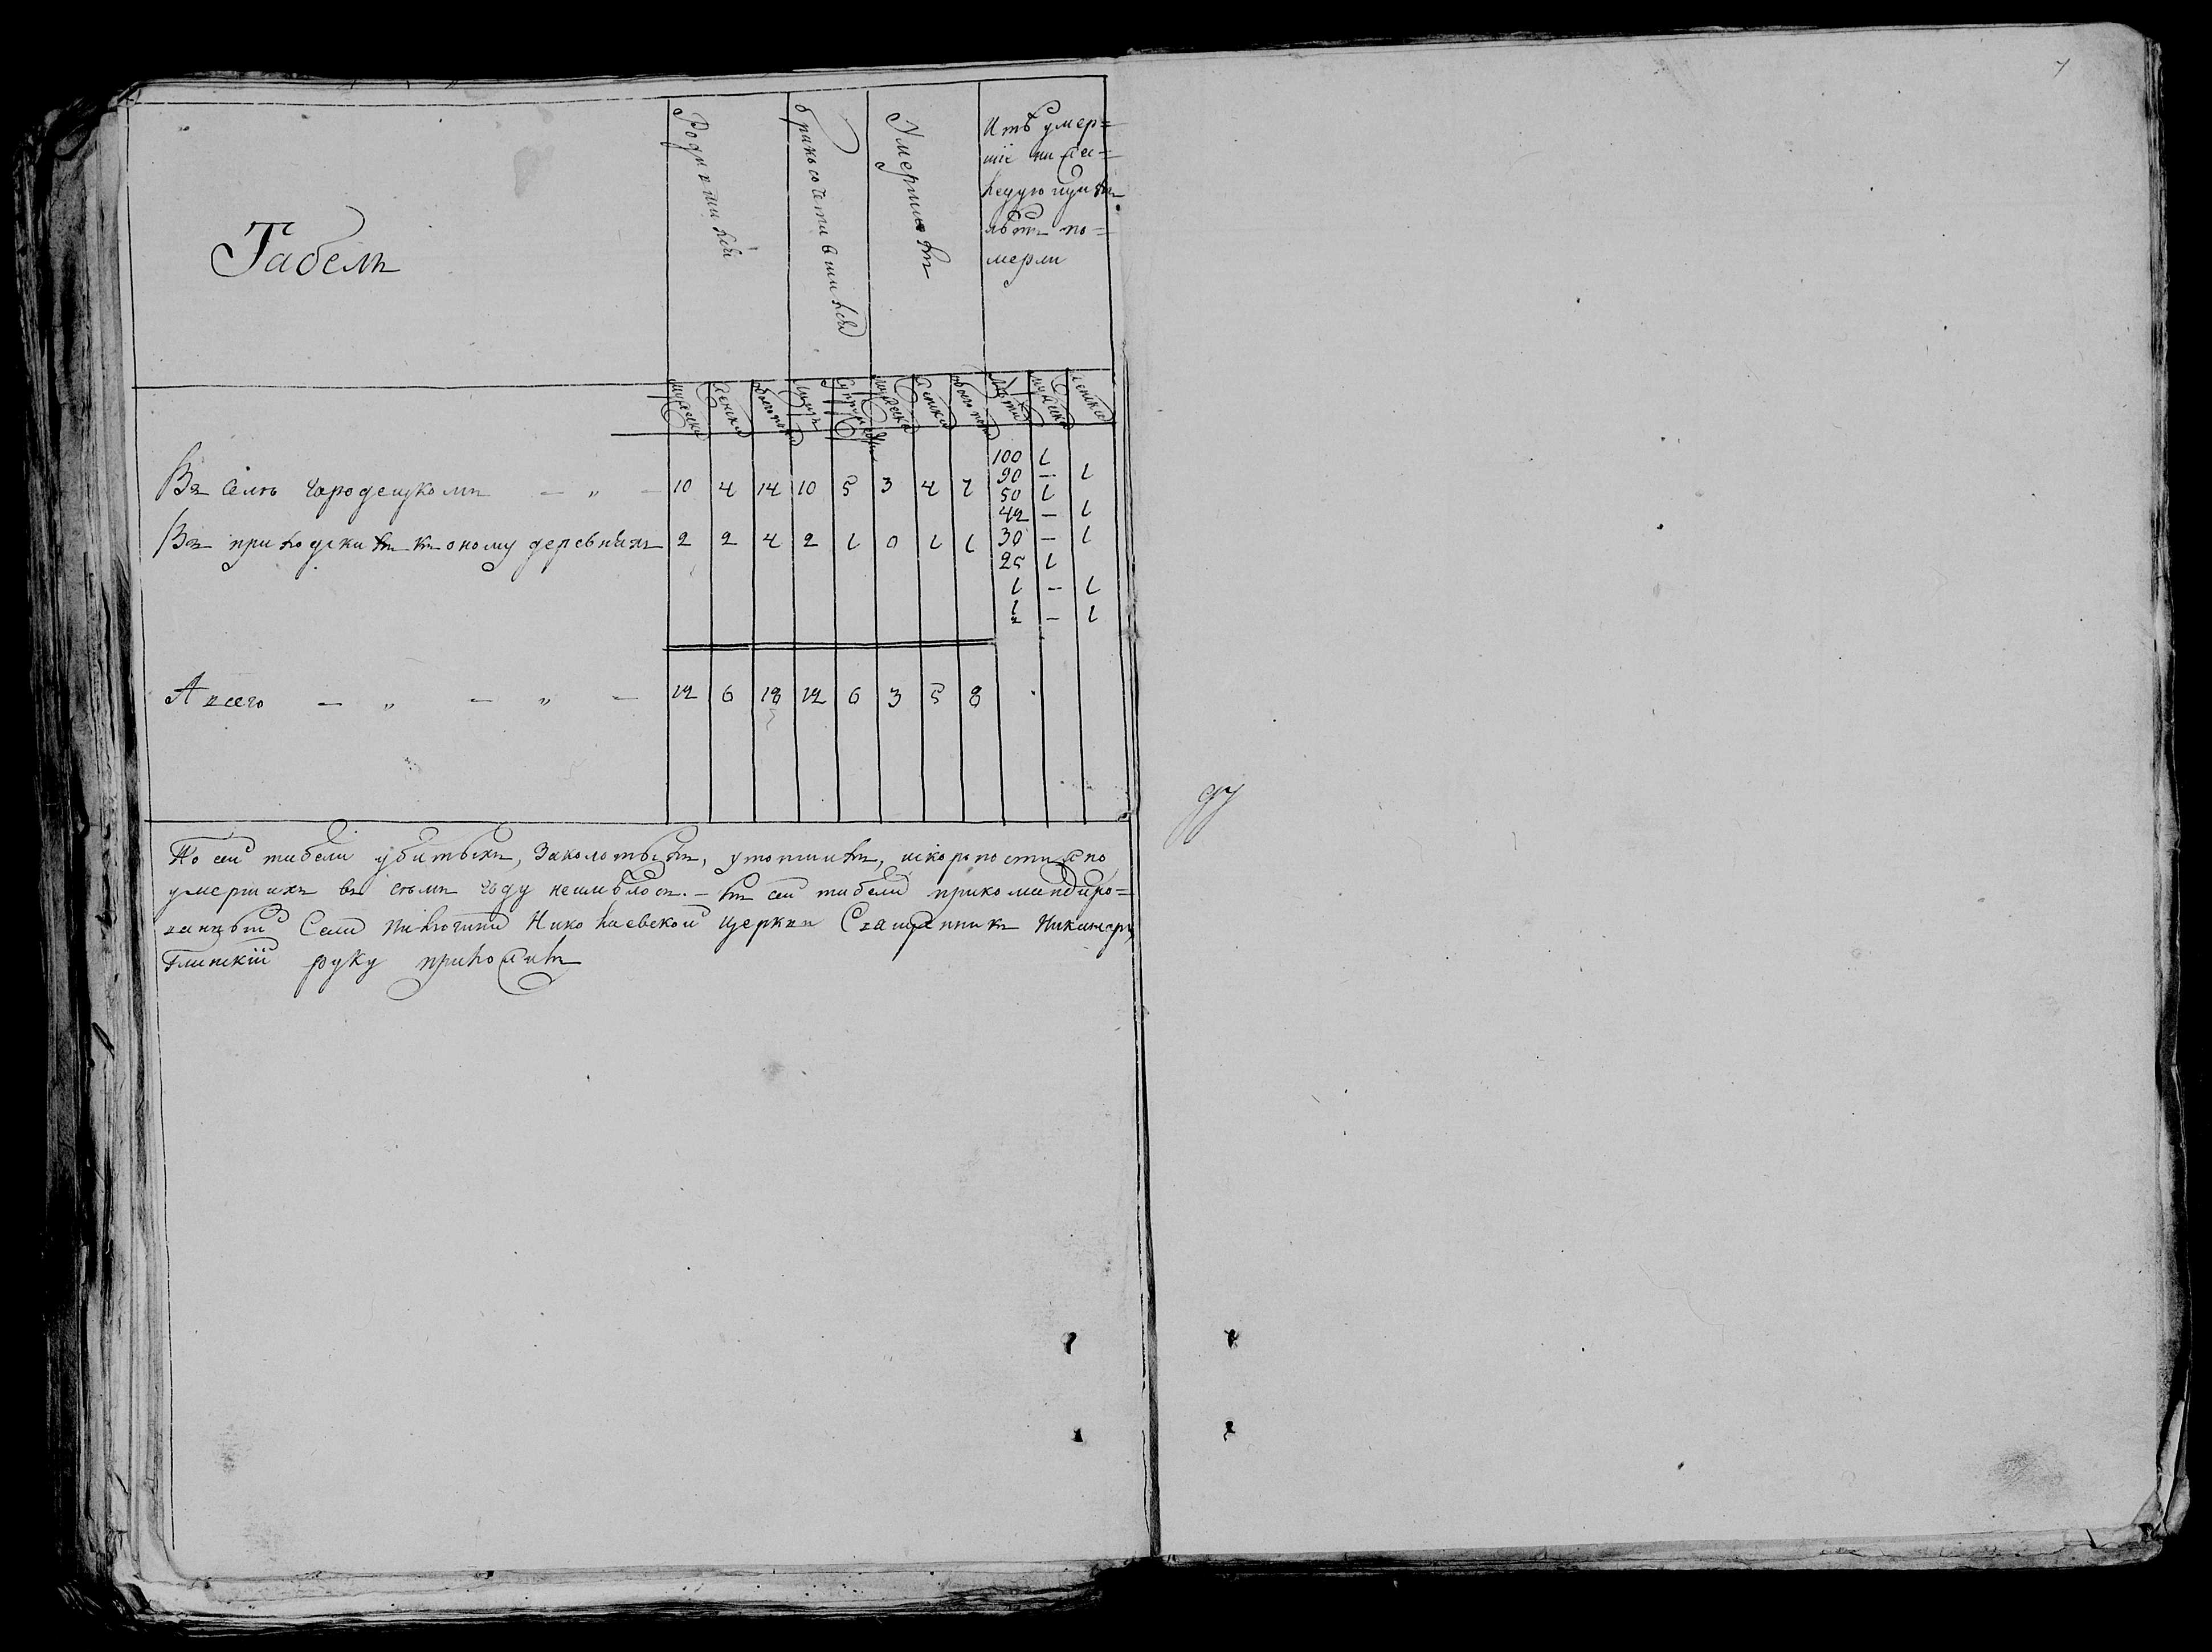 Табель
Родившихся
Бракосочетавшихся
Умершихъ
Изъ умер=
шіе на сле=
дующихъ
лѣтъ по=
мерли
мужеска женска обоего пола мужеска женска обоего пола лѣта мужеска женска
100 1
90 — 1
Въ селѣ Городецкомъ — „ — 10 4 14 10 5 3 4 7
50 1
42 — 1
Въ приходскихъ къ оному деревняхъ 2 2 4 2 1 0 1 1
30 — 1
25 1
1 — 1
1/2 — 1
А всего — „ — „ — 12 6 18 12 6 3 5 8
По сей табели убитыхъ, заколотыхъ, утопшихъ, и скоропостижно
умершихъ въ семъ году неимѣлось. — Къ сей табели прикомандиро=
ванный Села Николаевской церкви Священникъ Никаноръ
Глинскій руку приложилъ